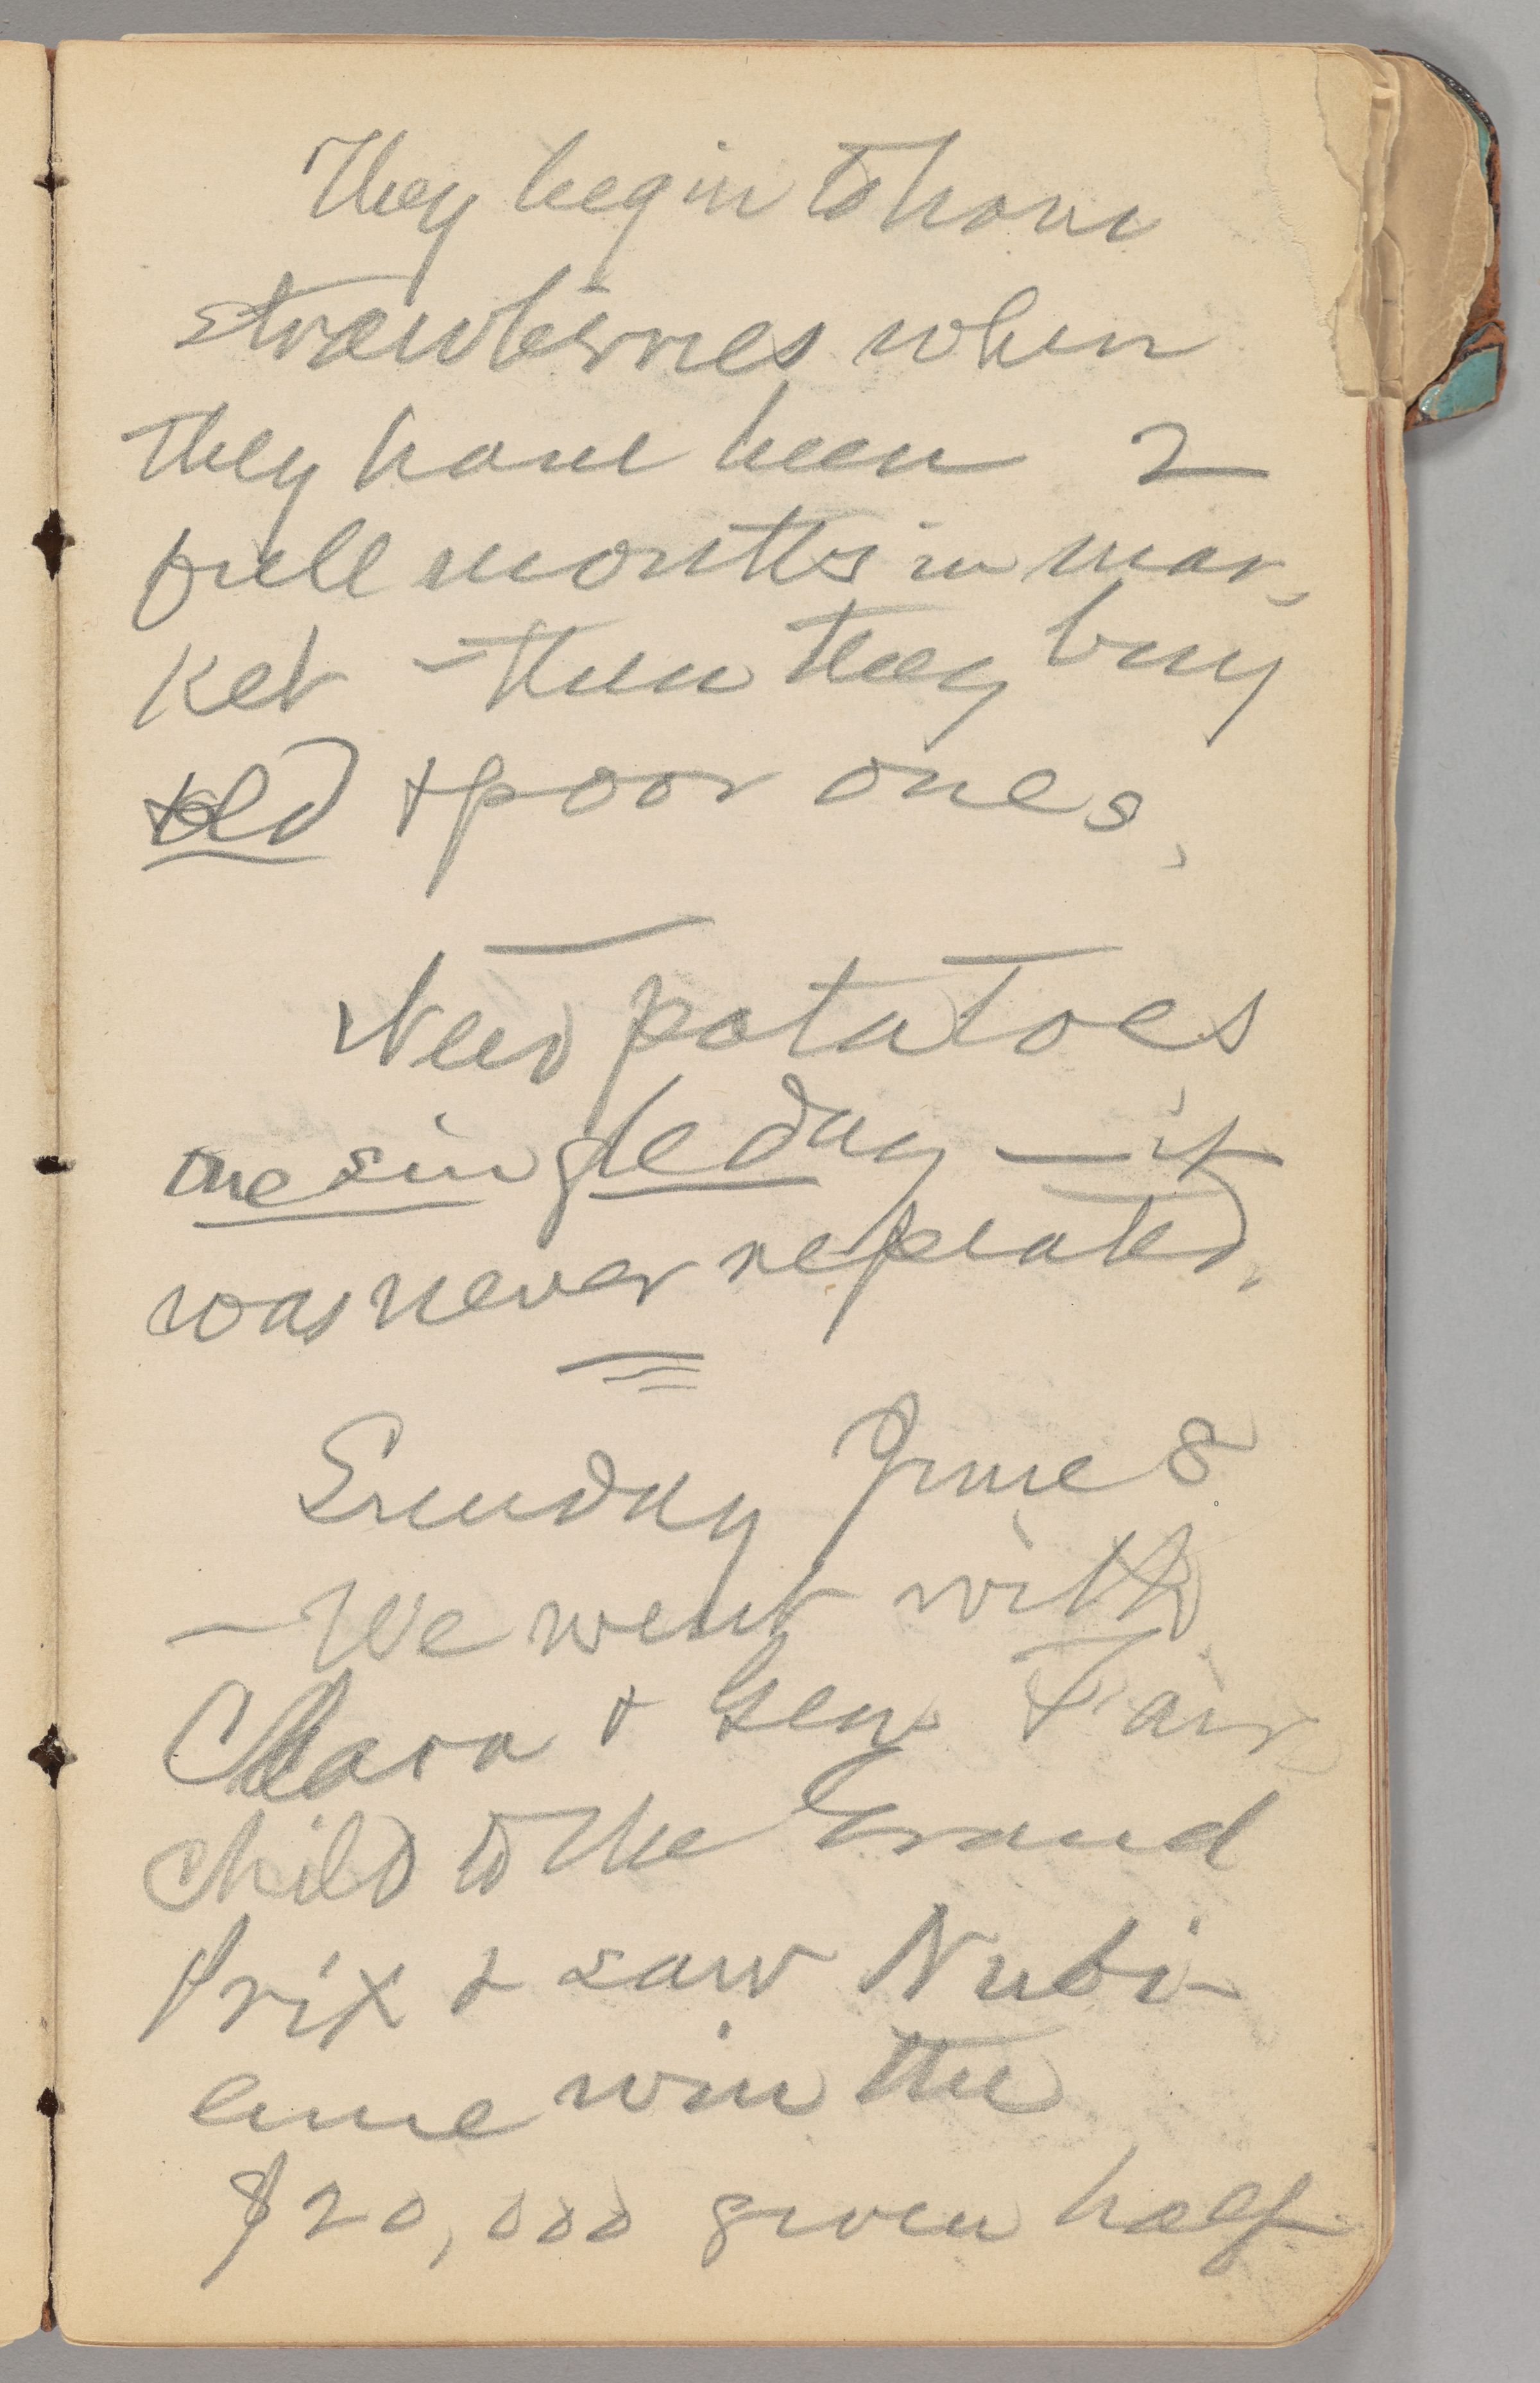 They begin to have
strawberries when
they have been 2
full months in mar-
ket – then they buy
old & poor ones.
New potatoes
one single day — it
was never repeated.
Sunday June 8
– We went with
Clara & Gen. Fair
child to the Grand
Prix & saw Nubi-
enne win the
$20,000 given half